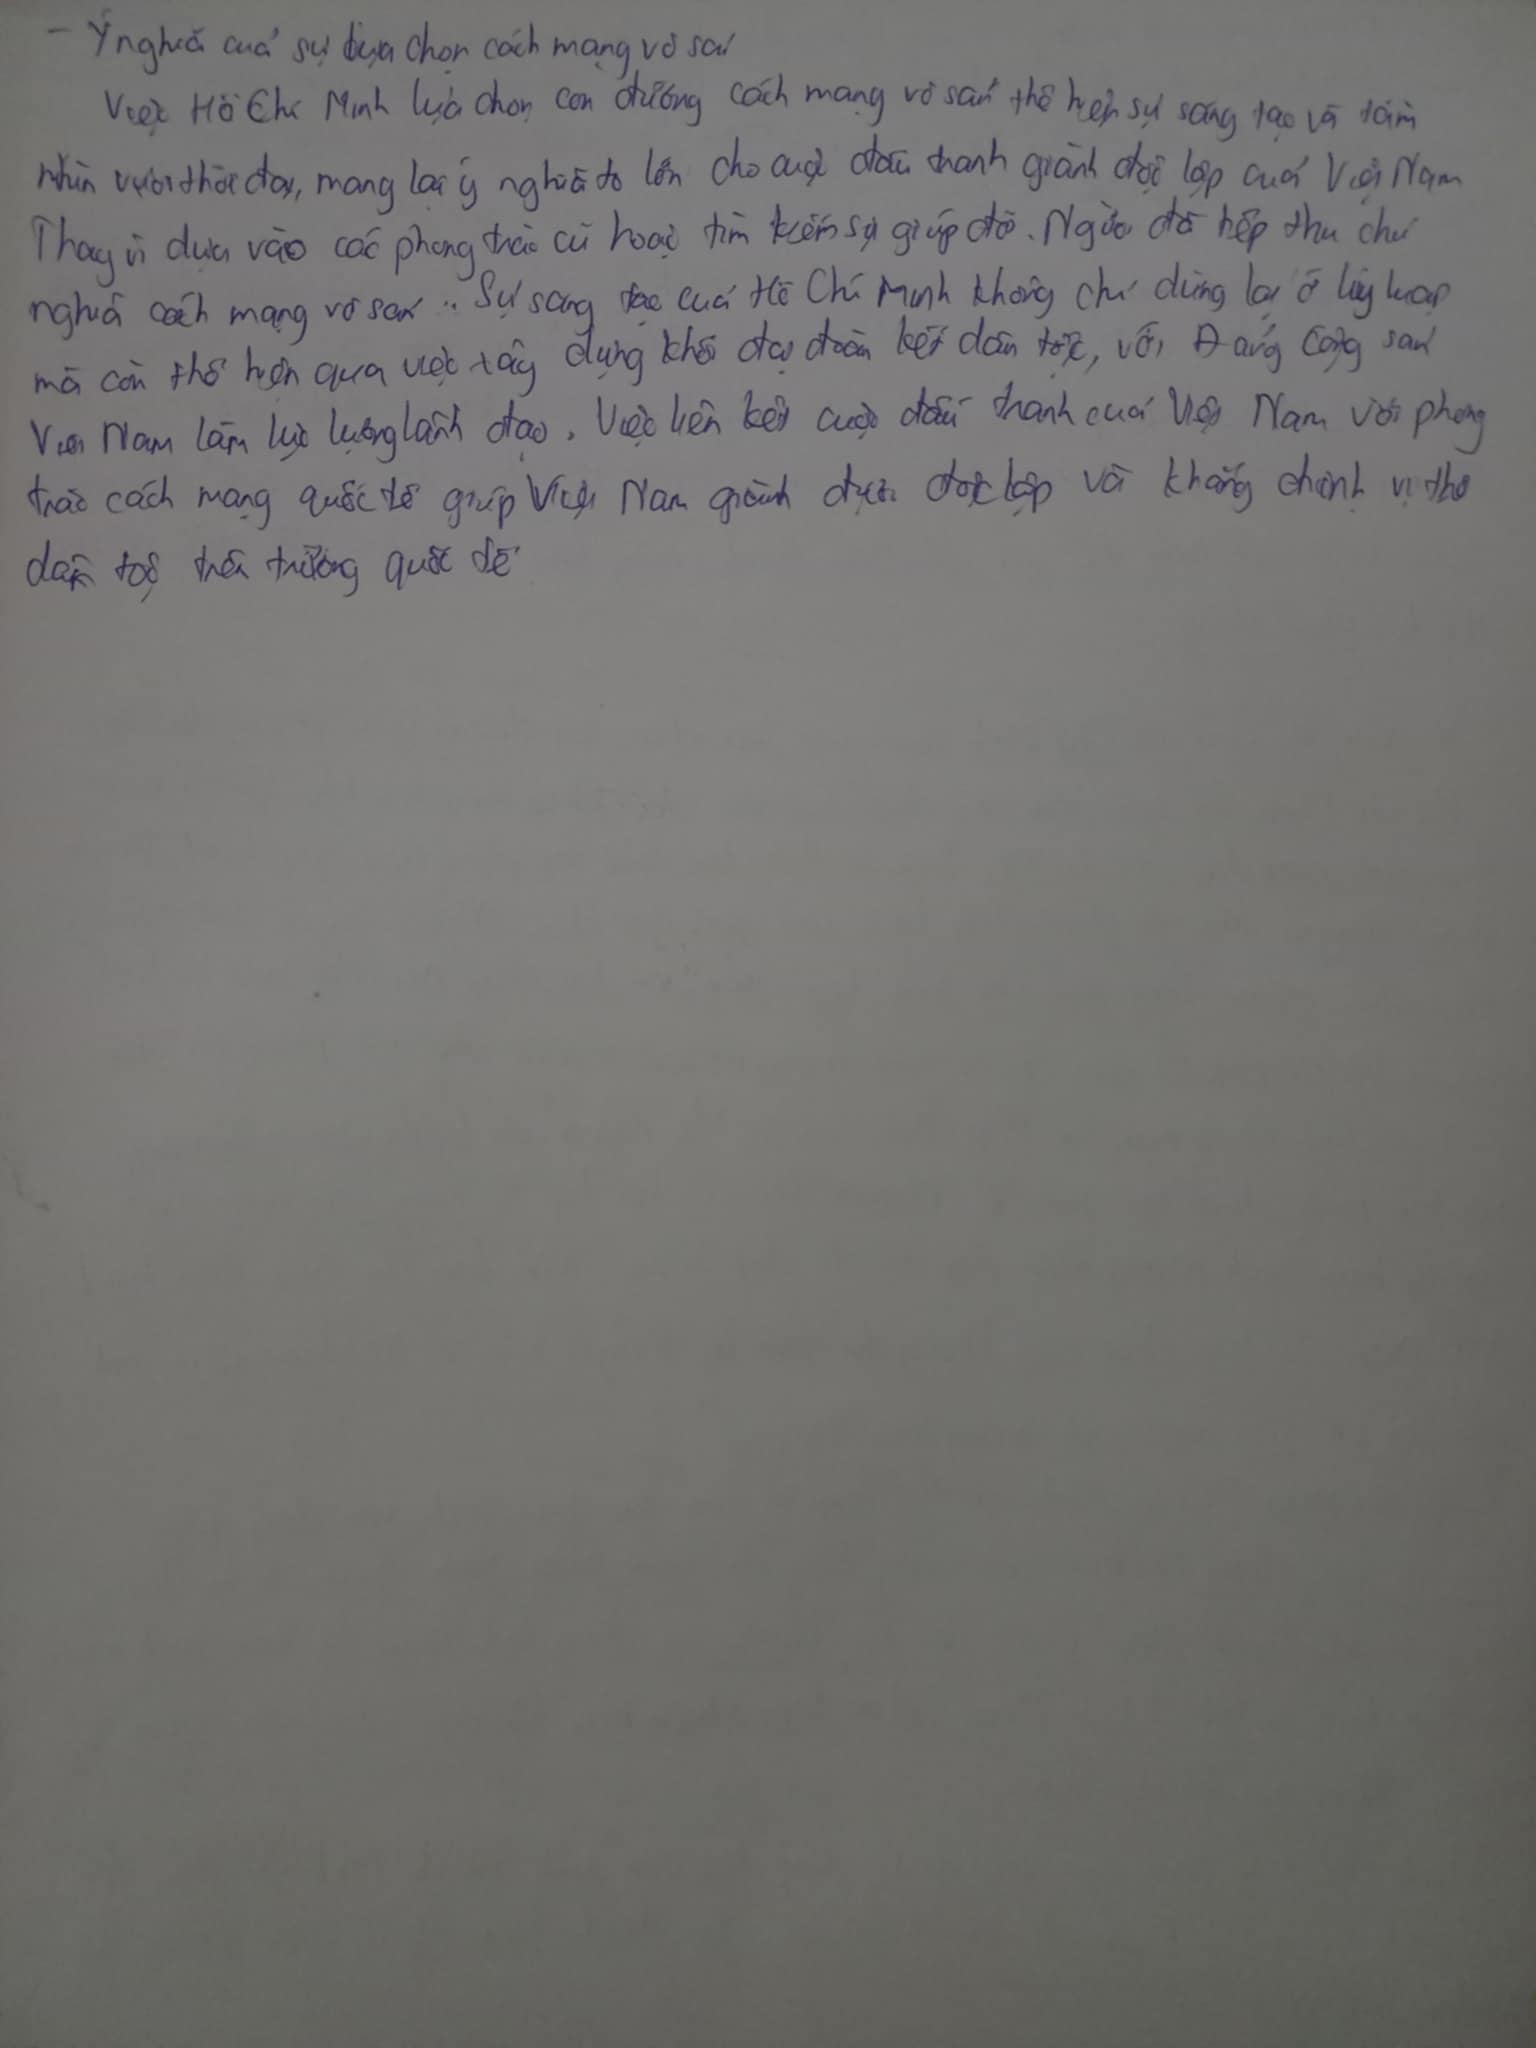 - Ý nghĩa của sự lựa chọn cách mạng vô sản
Việc Hồ Chí Minh lựa chọn con đường cách mạng vô sản thể hiện sự sáng tạo và tầm
nhìn vượt thời đại, mang lại ý nghĩa to lớn cho cuộc đấu tranh giành độc lập của Việt Nam
Thay vì dựa vào các phong trào cũ hoặc tìm kiếm sự giúp đỡ. Người đã tiếp thu chủ
nghĩa cách mạng vô sản .. Sự sáng tạo của Hồ Chí Minh không chỉ dừng lại ở lý luận
mà còn thể hiện qua việc xây dựng khối đại đoàn kết dân tộc, với Đảng Cộng sản
Việt Nam làm lực lượng lãnh đạo. Việc liên kết cuộc đấu tranh của Việt Nam với phong
trào cách mạng quốc tế giúp Việt Nam giành được độc lập và khẳng định vị thế
dân tộc trên trường quốc tế